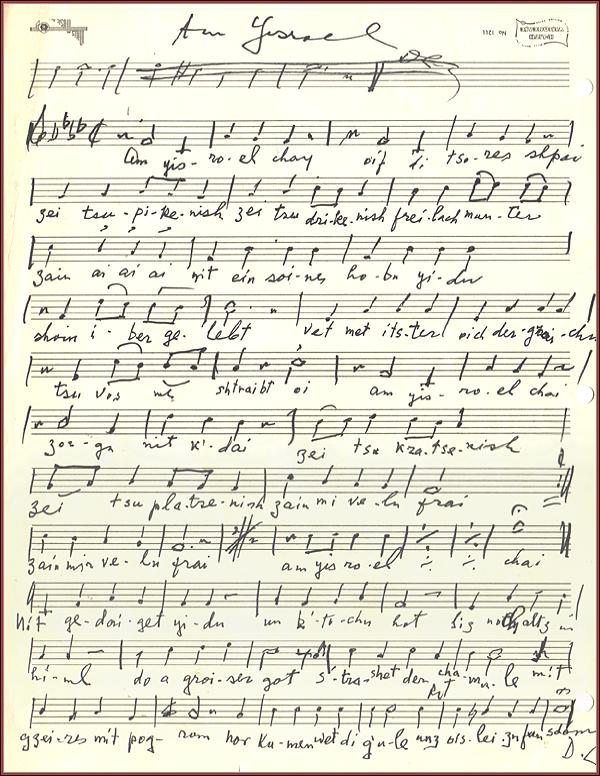 Am Yisroel
No 1211
D.C.
Am yis-ro-el chay oif di tso-res shpai
zei tsu-pi-ke-nish zei tsu dri-ke-nish frei-lach mun-ter
zain ai ai ai nit ein soi-nes ho-bn yi-dn
shoin i-ber ge-lebt vet met its-ter oich der-grai-chn
tsu vos me shtraibt oi am yis-ro-el chai
zor-gn nit k'-dai zei tsu kra-tse-nish
zei tsu pla-tze-nish zain mi ve-ln frai
zain mir ve-ln frai am yis ro-el chai
Nit ge-dai-get yi-dn un k'-to-chn hot biz in
hi-ml do a groi-ser got s'tra-shet den cha-ma-le mit
gzei-res mit pog-rom nor ku-men vet di g'u-le unz ois-lei-zn fun
D.C